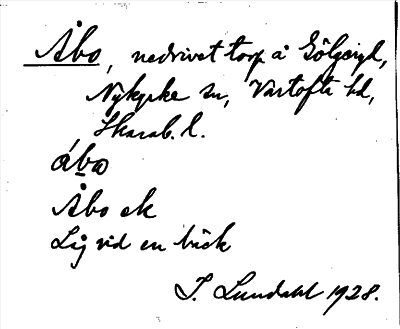 Åbo, nedrivet torp å Göljeryd,
Nykyrke sn, Vartofta hd,
Skarab. l.
åbo
Åbo ek
Låg vid en bäck
I. Lundahl 1928.